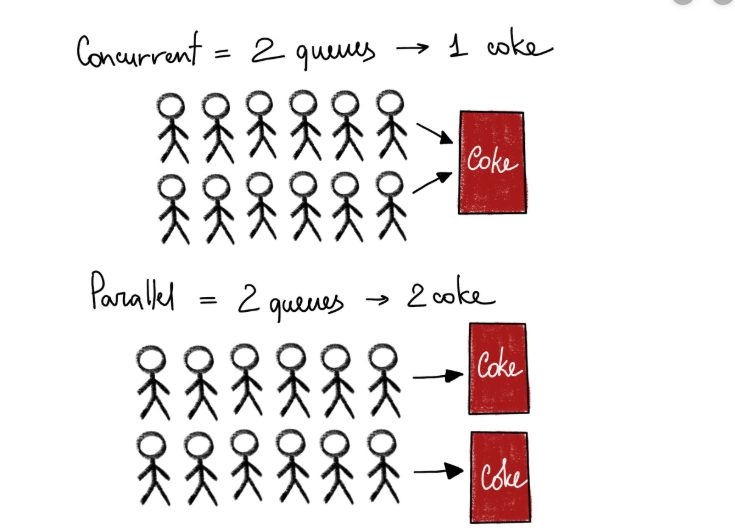 Concurrent = 2 queues → 1 coke
Coke
Parallel = 2 queues → 2 coke
Coke
Coke